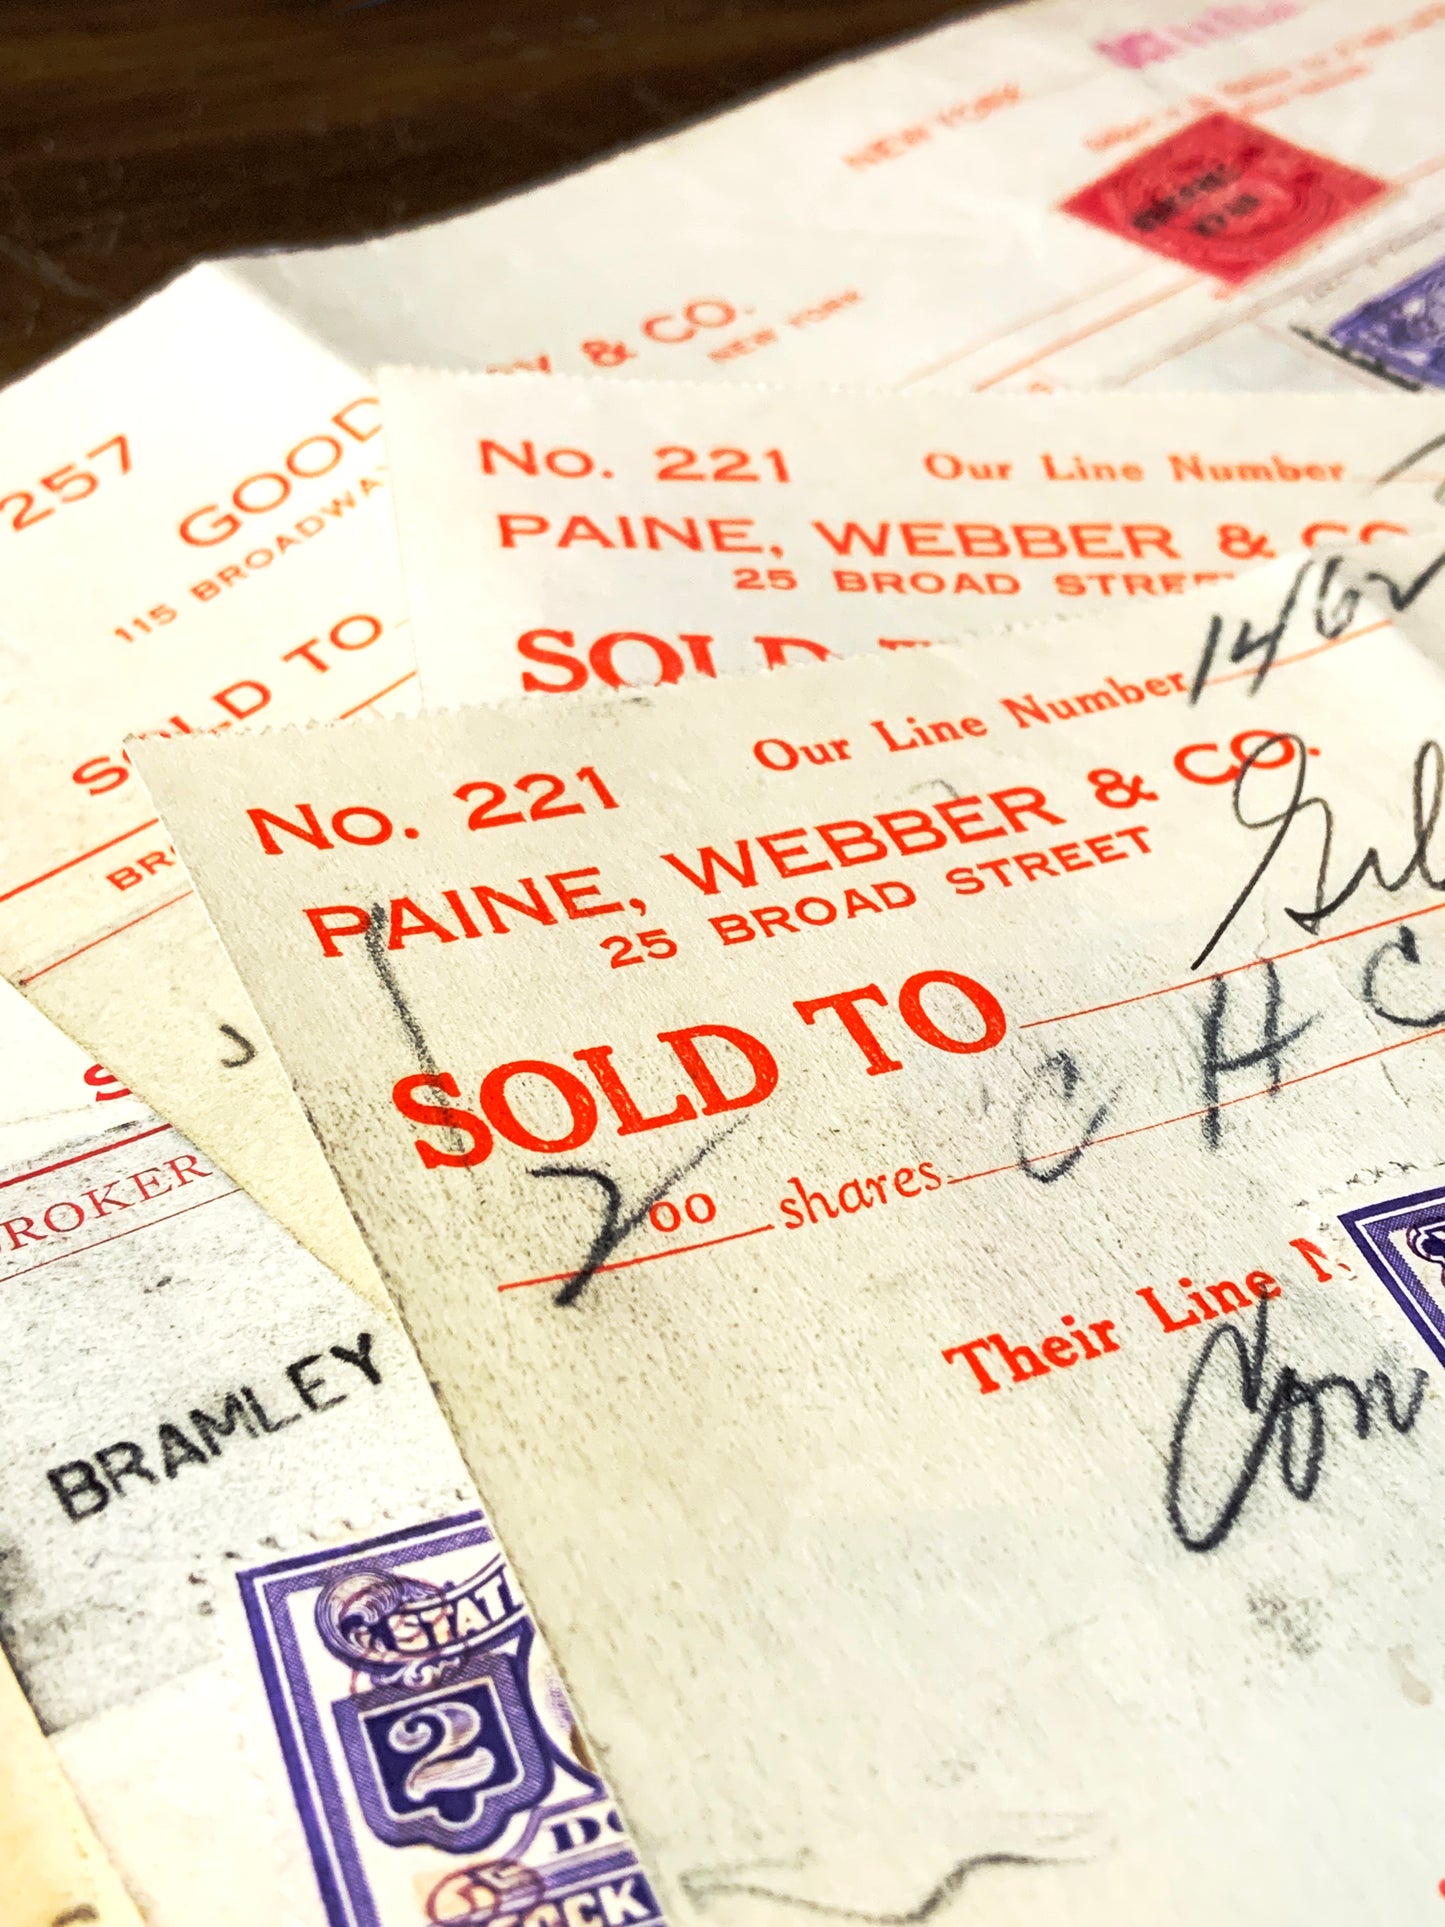 NEW YORK
& CO.
NEW YORK
257
GOOD
115 BROADWAY
SOLD TO
No. 221 Our Line Number
PAINE, WEBBER & CO
25 BROAD STREET
SOLD
No. 221 Our Line Number 1462
PAINE, WEBBER & CO.
25 BROAD STREET
SOLD TO
C H C
2 00 shares
Their Line N
Com
BR
J
S
ROKER
BRAMLEY
STAT
2
DO
OCK